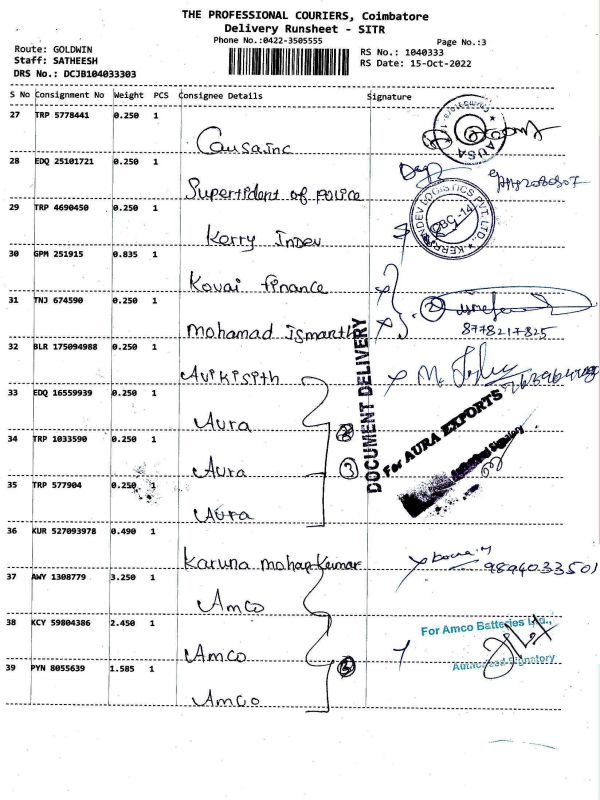 THE PROFESSIONAL COURIERS, Coimbatore
Delivery Runsheet - SITR
Phone No.:0422-3505555
Page No.:3
Route: GOLDWIN
RS No.: 1040333
Staff: SATHEESH
RS Date: 15-Oct-2022
DRS No.: DCJB104033303
S No Consignment No Weight PCS Consignee Details Signature
27 TRP 5778441 0.250 1
Causainc
28 EDQ 25101721 0.250 1
of police
29 TRP 4690450 0.250 1
Kerry Indev
30 GPM 251915 0.835 1
Kovai finance
31 TNJ 674590 0.250 1
Mohamad Ismanth
8778217825
32 BLR 175094988 0.250 1
33 EDQ 16559939 0.250 1
Aura
34 TRP 1033590 0.250 1
Aura
3
35 TRP 577904 0.250 1
Aura
DOCUMENT DELIVERY
For AURA EXPORTS
Authorised Signatory
36 KUR 527093978 0.490 1
Karuna Kumar
9894033501
37 AWY 1308779 3.250 1
Amco
38 KCY 59804386 2.450 1
For Amco Batteries Ltd.,
Amco
Authorised Signatory
39 PYN 8055639 1.585 1
Amco